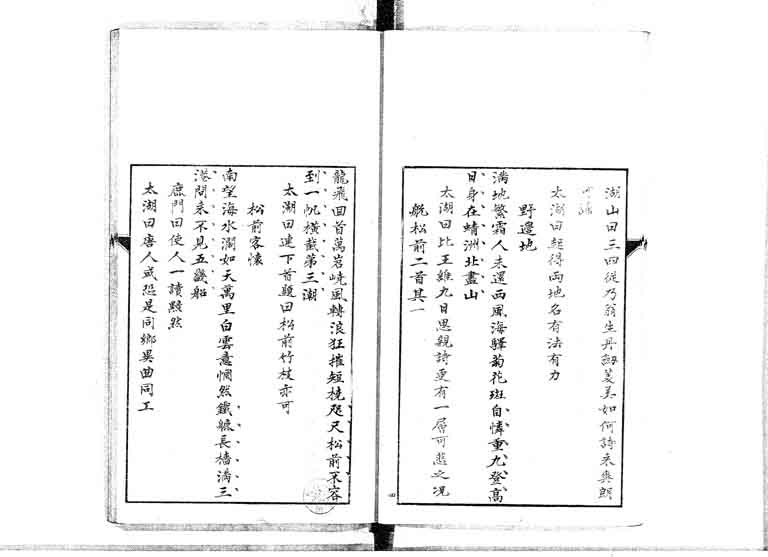 湖山曰三四從乃翁生丹釰菱美如何詩來與朗
可誦
太湖曰經得兩地名有法有力
野邊地
滿地繁霜人未還西風海驛菊花斑自憐重九登高
日身在蜻洲北盡山
太湖曰比王維九日思親詩更有一層可悲之况
航松前二首其一
龍飛回首萬岩嶢風轉浪狂摧短橈咫尺松前不容
到一帆橫截第三潮
太湖曰連下首題曰松前竹枝亦可
松前客懷
南望海水濶如天萬里白雲意惘然鐵艫長檣滿三
港問來不見五畿船
鹿門曰使人一讀黯然
太湖曰唐人或恐是同鄉異曲同工